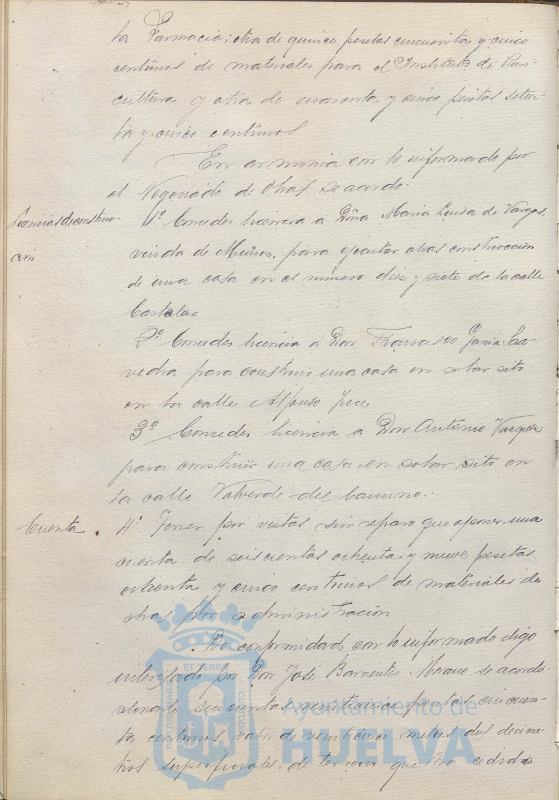 la Farmacia; otra de quince pesetas cincuenta y cinco
centimos de materiales para el Instituto de Puri-
cultura y otra de cuarenta y cinco pesetas seten-
ta y cinco centimos
En armonia con lo informado por
el Negociado de Obras se acordó:
Licencias de construc-
ción
1º Conceder licencia a Dña Maria Luisa de Vargas,
viuda de Muñoz, para ejecutar obras construccion
de una casa en el numero diez y siete de la calle
Castelar
2º Conceder licencia a Don Francisco Garcia Saa-
vedra para construir una casa en solar sito
en la calle Alfonso
3º Conceder licencia a Don Antonio Vazquez
para construir una casa en solar sito en
la calle Valverde del Camino.
Cuenta
4º Poner por vistas sin reparo que oponer una
cuenta de seiscientas ochenta y nueve pesetas
ochenta y cinco centimos de materiales de
obras por administracion
De conformidad con lo informado
interesado por Don José Barrientos se acordó
cincuenta y cinco pesetas cincuen-
ta centimos valor de metros dos decime-
tros superficiales de terreno que ha cedido
Ayuntamiento de
HUELVA